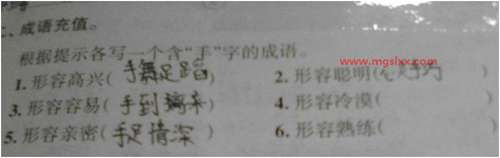 、成语充值。
根据提示各写一个含“手”字的成语。
www.mgslxx.com
1.形容高兴(手舞足蹈) 2.形容聪明(心灵手巧)
3.形容容易(手到擒来) 4.形容冷漠( )
5.形容亲密(手足情深) 6.形容熟练( )